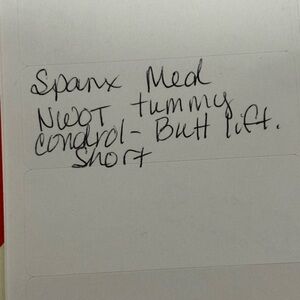 Spanx Med
NWOT tummy
control - Butt lift.
Short